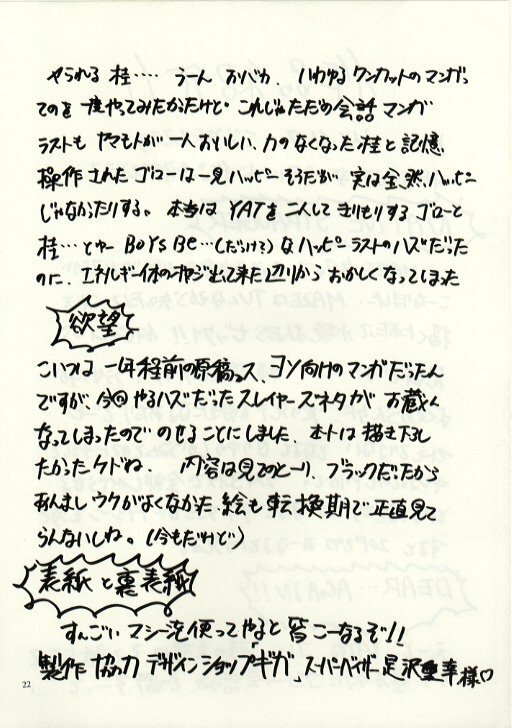 やられる桂‥‥ うーん おバカ、いわゆるワンカットのマンガっ
てのを一度やってみたかったけど これじゃただの会話マンガ
ラストも ヤマモトが一人おいしい、力のなくなった桂と記憶
操作されたゴローは一見ハッピーそうだが 実は全然ハッピー
じゃなかったりする。本当は YATを二人してきりもりするゴローと
桂…とかー BOYS BE…(だっけ?)なハッピーラストのハズだった
のに、エネルギー体のオヤジ出て来た辺りからおかしくなってしまった
欲望
こいつは一年程前の原稿っス、ヨソ向けのマンガだったん
ですが、今回やるハズだったスレイヤーズネタが お蔵入
なってしまったので のせることにしました、ホントは描き下し
たかったケドね。 内容は見てのとーり、ブラックだったから
あんましウケがよくなかった、絵も転換期で正直見て
らんないしね。(今もだけれど)
表紙と裏表紙
すんごい マシーン使ってやると 皆こーなるぞ!!
製作協力 デザインショップ「ギガ」 スーパーバイザー 足沢 幸様♡
22